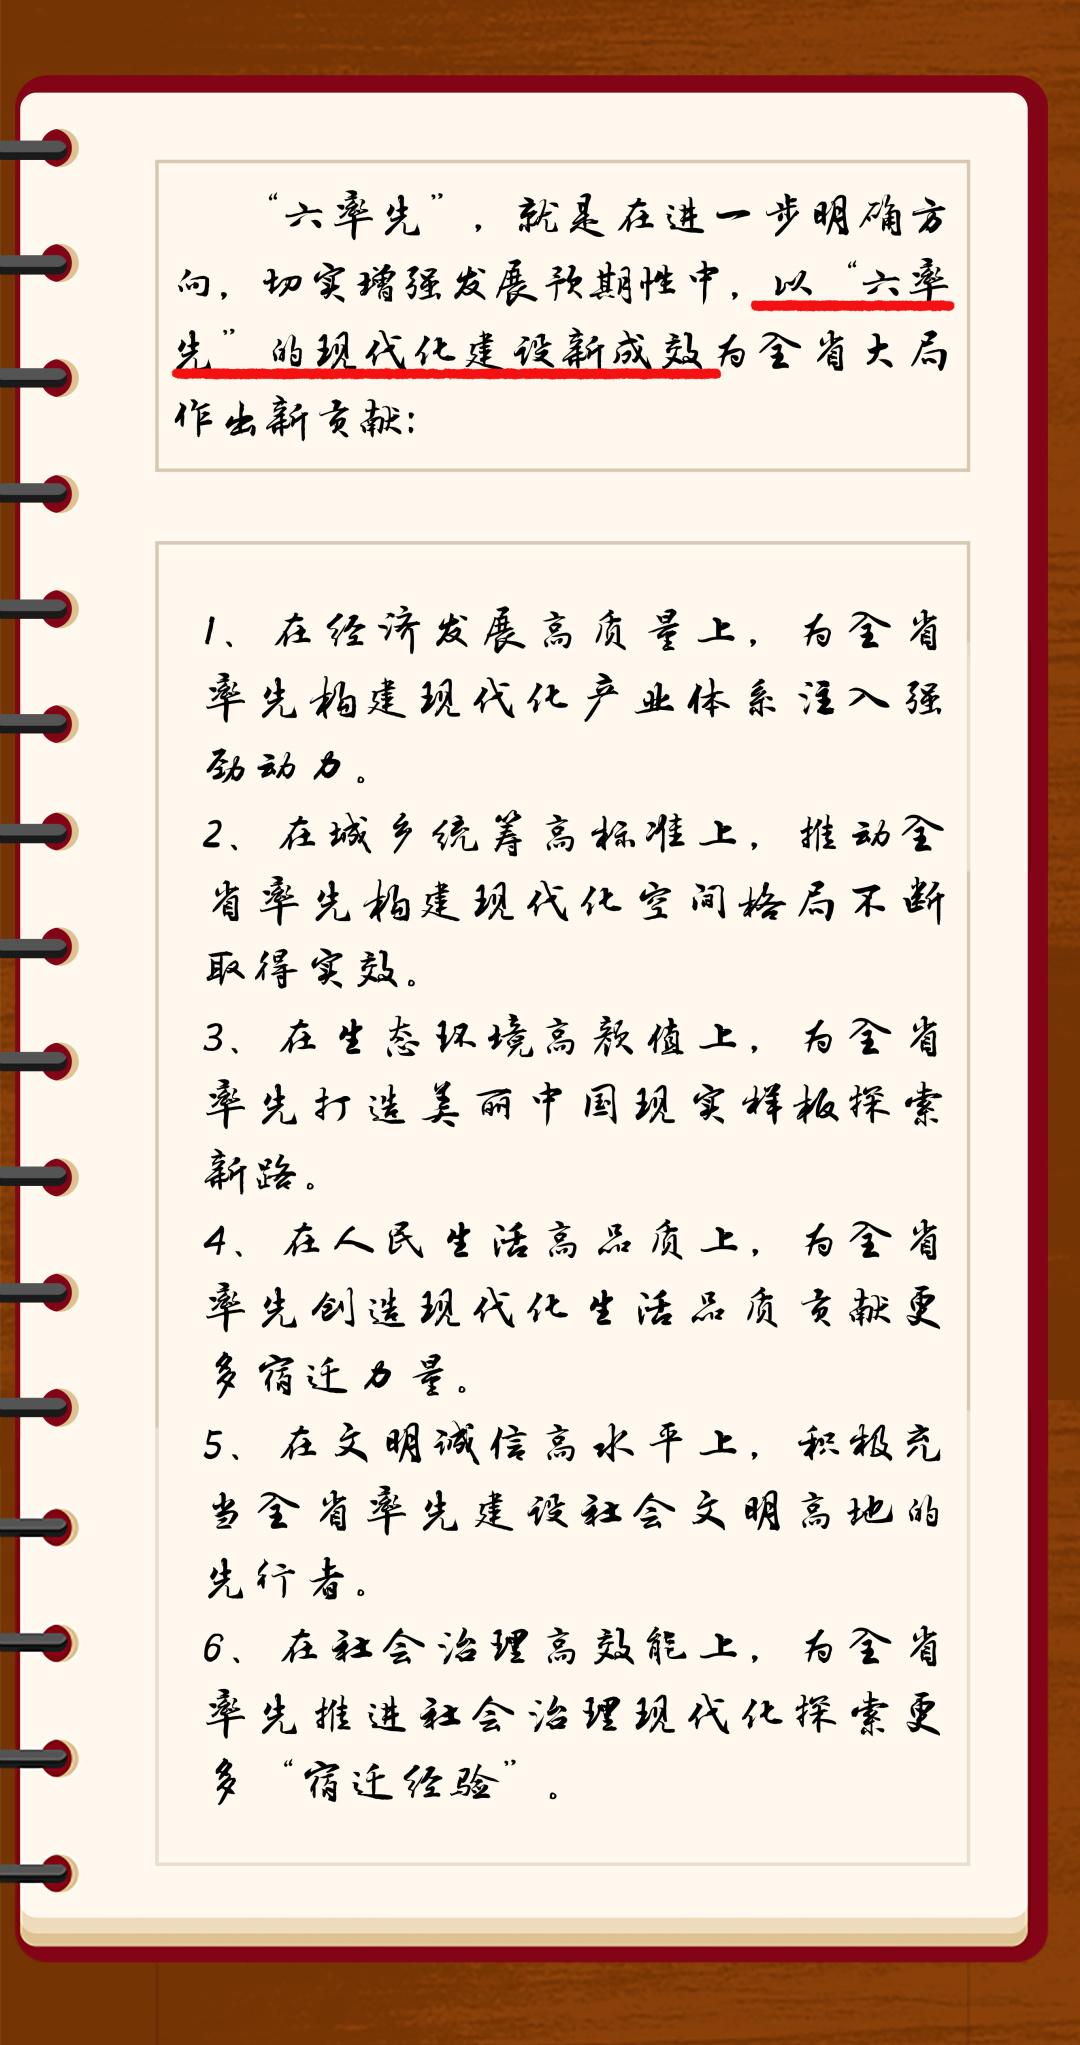 “六率先”，就是在进一步明确方
向，切实增强发展预期性中，以“六率
先”的现代化建设新成效为全省大局
作出新贡献：
1、在经济发展高质量上，为全省
率先构建现代化产业体系注入强
劲动力。
2、在城乡统筹高标准上，推动全
省率先构建现代化空间格局不断
取得实效。
3、在生态环境高颜值上，为全省
率先打造美丽中国现实样板探索
新路。
4、在人民生活高品质上，为全省
率先创造现代化生活品质贡献更
多宿迁力量。
5、在文明诚信高水平上，积极充
当全省率先建设社会文明高地的
先行者。
6、在社会治理高效能上，为全省
率先推进社会治理现代化探索更
多“宿迁经验”。